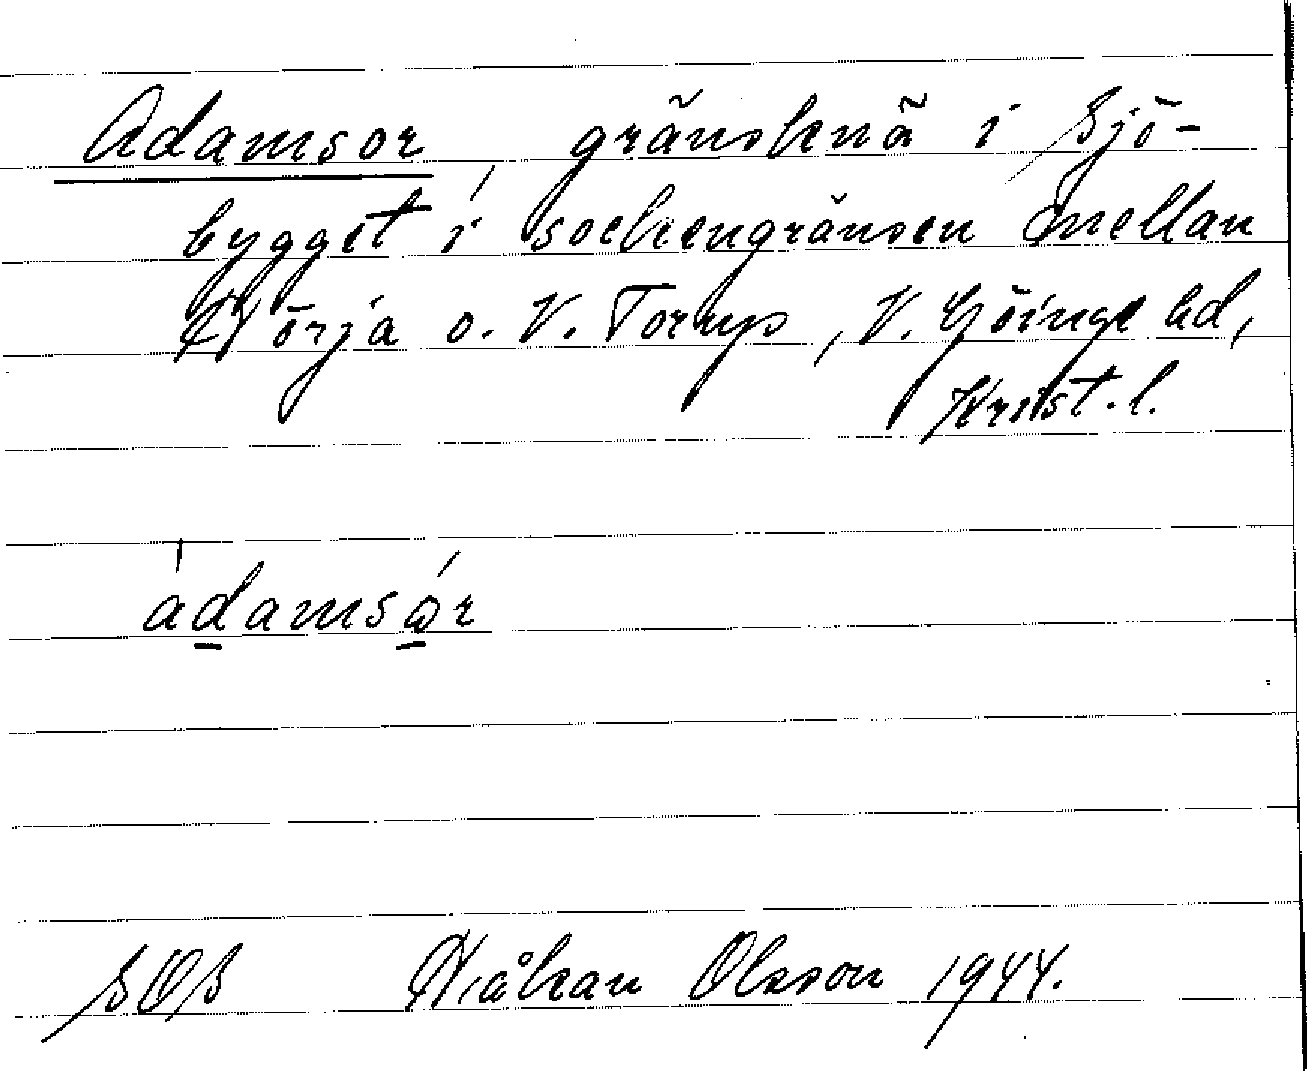 Adamsor, gränsknä i Sjö-
bygget i sockengränsen mellan
Hörja o. V. Torups, V. Göinge hd,
Krist. l.
ádamsór
SOS Håkan Olsson 1944.